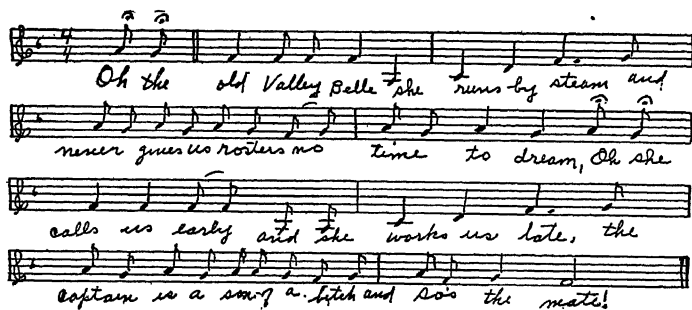 Oh the old Valley Belle she runs by steam and
never gives us rosters no time to dream, Oh she
calls us early and she works us late, the
captain is a son of a bitch and so's the mate!